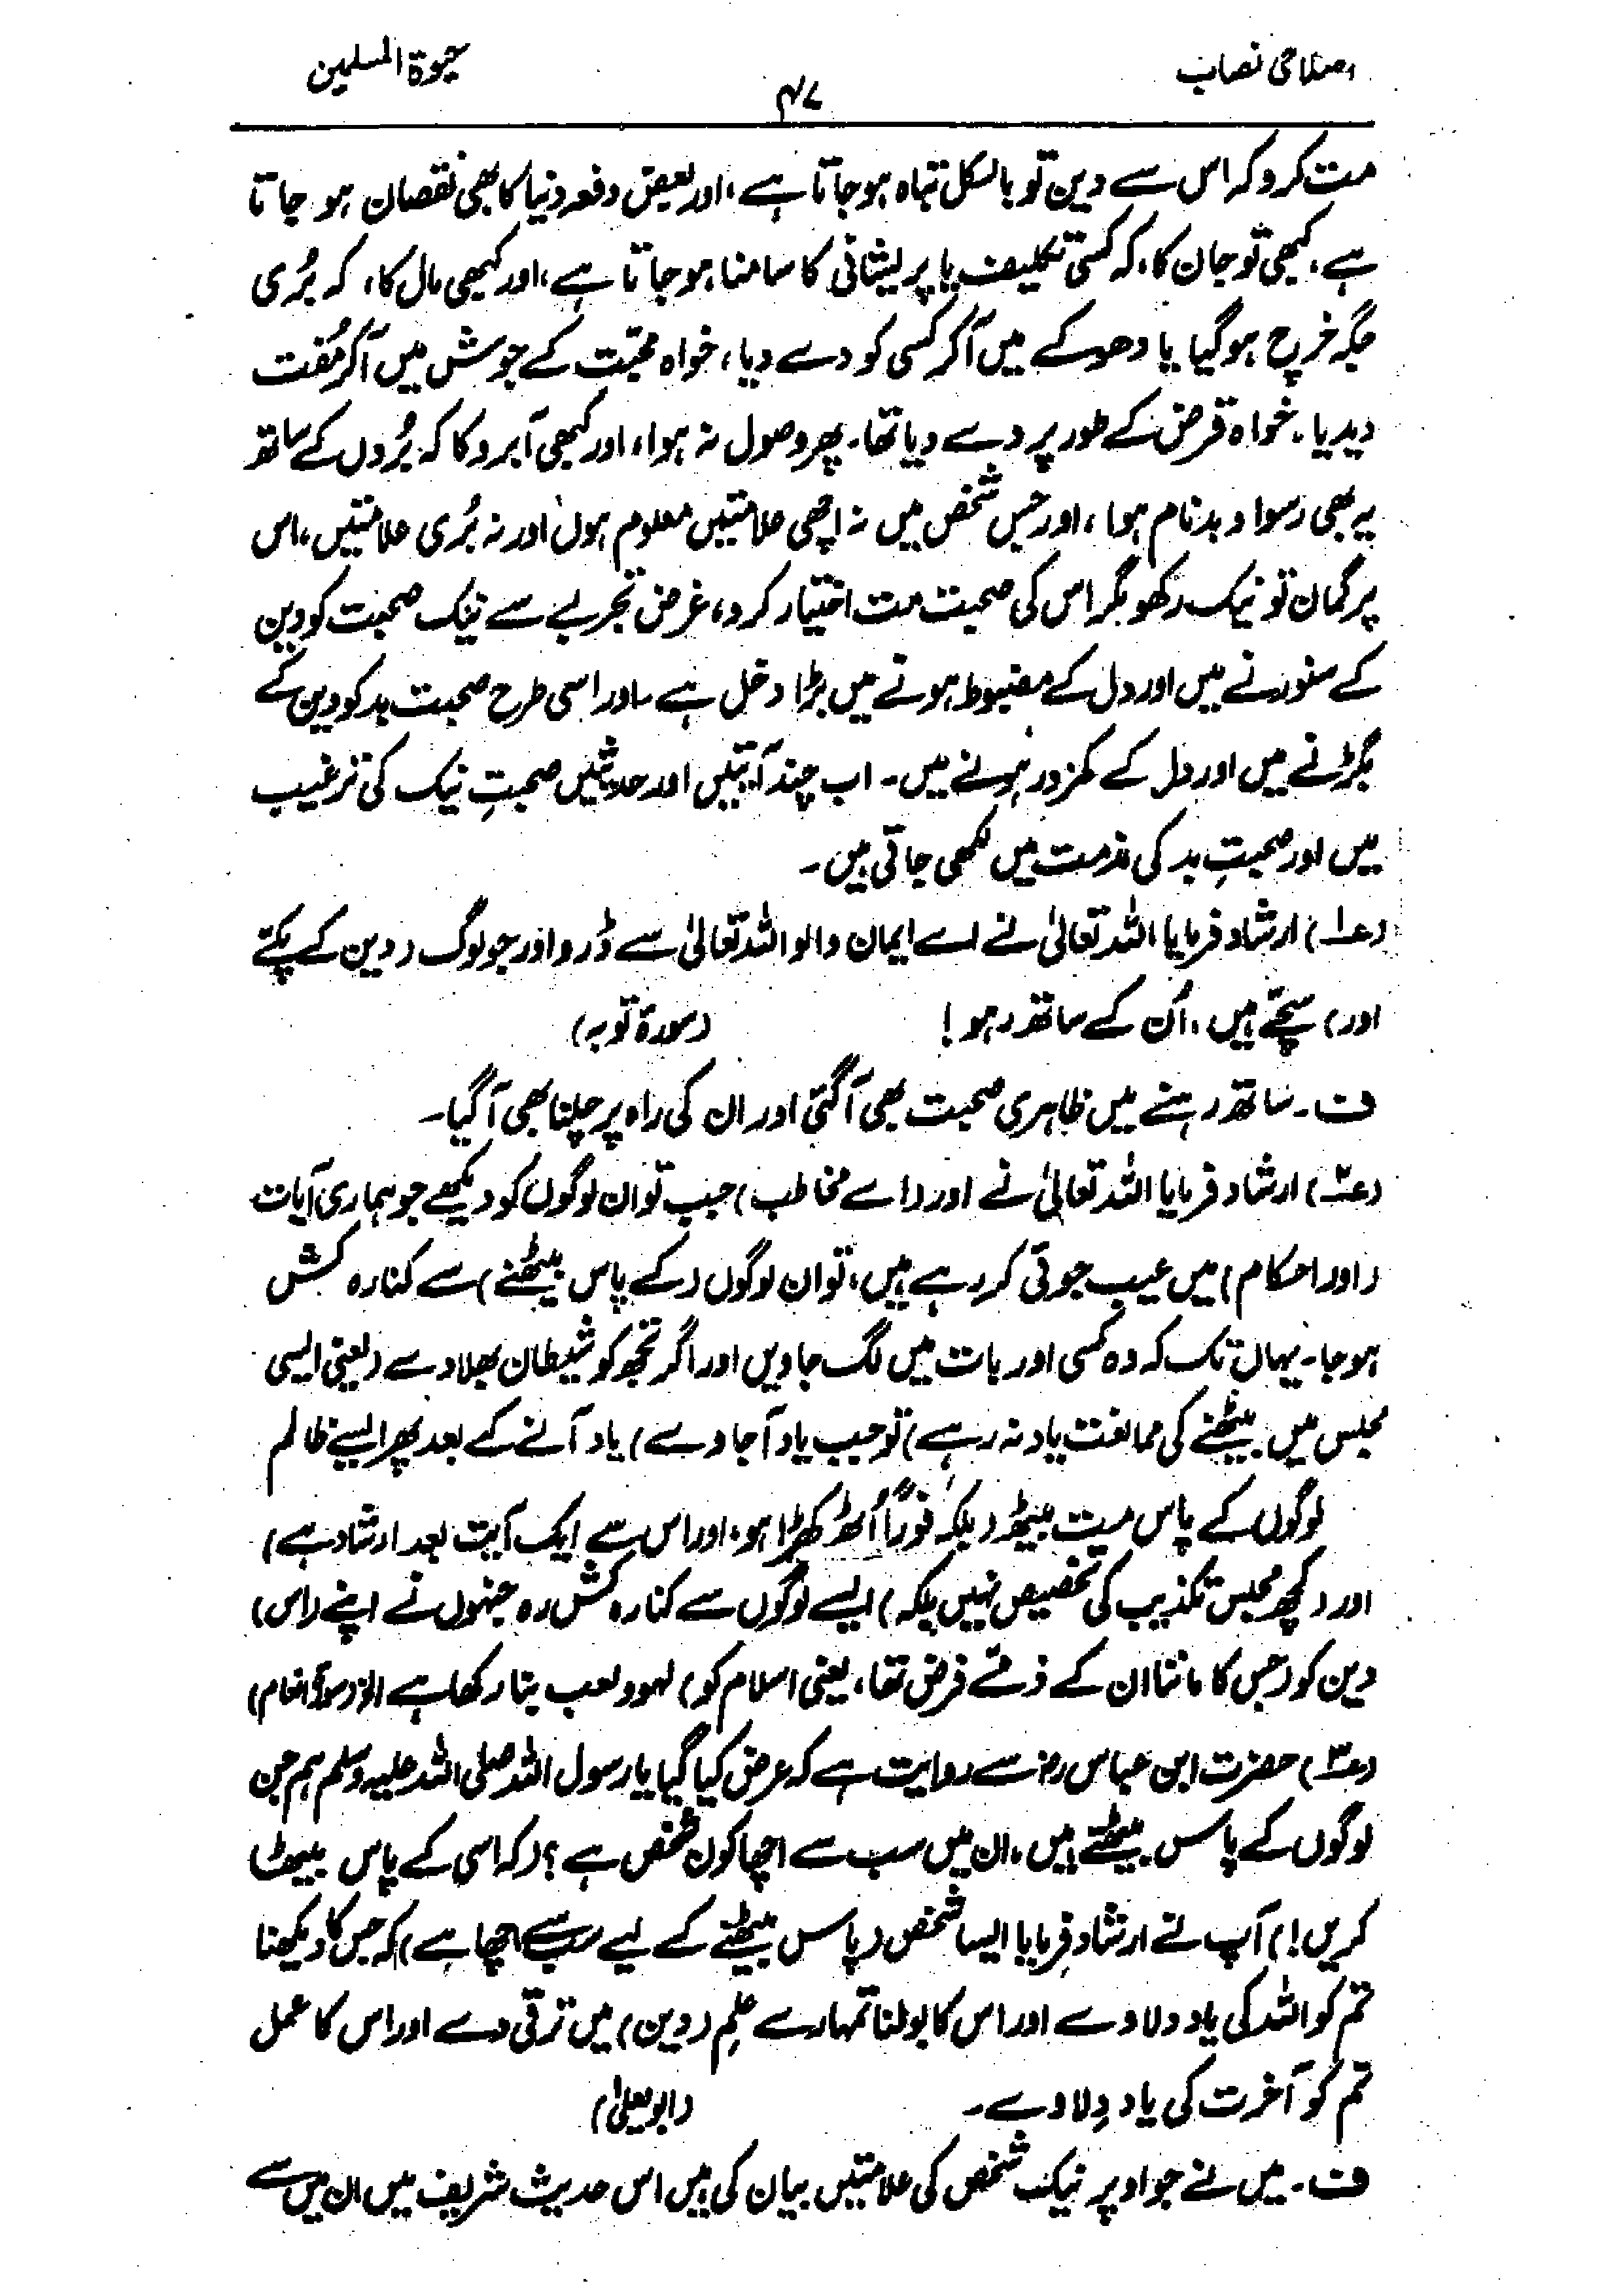 اصلاحی نصاب
۴۷
حیٰوۃ المسلمین
مت کرو کہ اس سے دین تو بالکل تباہ ہوجاتا ہے، اور بعض دفعہ دنیا کا بھی نقصان ہو جاتا
ہے، کبھی تو جان کا، کہ کسی تکلیف یا پریشانی کا سامنا ہوجاتا ہے، اور کبھی مال کا، کہ بُری
جگہ خرچ ہوگیا یا دھوکے میں آکر کسی کو دے دیا، خواہ محبّت کے جوش میں آکر مُفت
دیدیا۔ خواہ قرض کے طور پر دے دیا تھا۔ پھر وصول نہ ہوا، اور کبھی آبرو کا کہ بُروں کے ساتھ
یہ بھی رسوا و بدنام ہوا، اور جس شخص میں نہ اچھی علامتیں معلوم ہوں اور نہ بُری علامتیں، اس
پر گمان تو نیک رکھو مگر اس کی صحبت مت اختیار کرو، غرض تجربے سے نیک صحبت کو دین
کے سنورنے میں اور دل کے مضبوط ہونے میں بڑا دخل ہے۔ اور اسی طرح صحبت بد کو دین کے
بگڑنے میں اور دل کے کمزور ہونے میں۔ اب چند آیتیں اور حدیثیں صحبتِ نیک کی ترغیب
میں اور صحبتِ بد کی مذمت میں لکھی جاتی ہیں۔
(ع۱) ارشاد فرمایا اللہ تعالیٰ نے اے ایمان والو اللہ تعالیٰ سے ڈرو اور جو لوگ (دین کے پکّے
اور) سچّے ہیں، اُن کے ساتھ رہو! (سورۃ توبہ)
ف۔ ساتھ رہنے میں ظاہری صحبت بھی آگئی اور ان کی راہ پر چلنا بھی آگیا۔
(ع۲) ارشاد فرمایا اللہ تعالیٰ نے اور (اے مخاطب) جب تو ان لوگوں کو دیکھے جو ہماری آیات
(اور احکام) میں عیب جوئی کر رہے ہیں، تو ان لوگوں (کے پاس بیٹھنے) سے کنارہ کش
ہوجا۔ یہاں تک کہ وہ کسی اور بات میں لگ جاویں اور اگر تجھ کو شیطان بھلا دے (یعنی ایسی
مجلس میں بیٹھنے کی ممانعت یاد نہ رہے) تو (جب یاد آجاوے) یاد آنے کے بعد پھر ایسے ظالم
لوگوں کے پاس مت بیٹھ (بلکہ فوراً اُٹھ کھڑا ہو، اور اس سے ایک آیت بعد ارشاد ہے)
اور (کچھ مجلس تکذیب کی تخصیص نہیں بلکہ) ایسے لوگوں سے کنارہ کش رہ جنہوں نے اپنے (اس)
دین کو (جس کا ماننا ان کے ذمّے فرض تھا، یعنی اسلام کو) لہو و لعب بنا رکھا ہے الخ (سورۃ انعام)
(ع۳) حضرت ابن عباس رضؓ سے روایت ہے کہ عرض کیا گیا یا رسول اللہ صلی اللہ علیہ وسلم ہم جن
لوگوں کے پاس بیٹھتے ہیں، ان میں سب سے اچھا کون شخص ہے؟ (کہ اسی کے پاس بیٹھا
کریں!) آپ نے ارشاد فرمایا ایسا شخص (پاس بیٹھنے کے لیے سب سے اچھا ہے) کہ جس کا دیکھنا
تم کو اللہ کی یاد دلاوے اور اس کا بولنا تمہارے علِم (دین) میں ترقی دے اور اس کا عمل
تم کو آخرت کی یاد دِلاوے۔ (ابو یعلیٰ)
ف۔ میں نے جو اوپر نیک شخص کی علامتیں بیان کی ہیں اس حدیث شریف میں ان میں سے